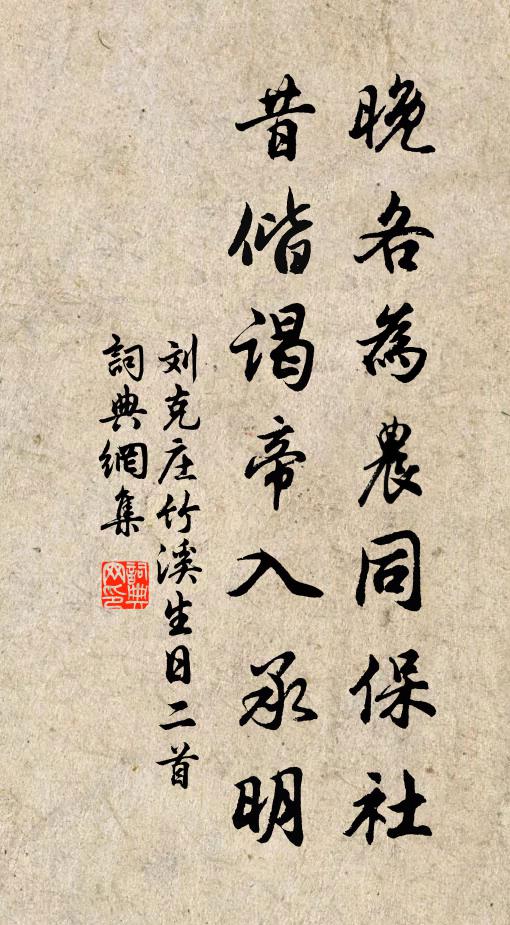 晚各為農同保社
昔偕谒帝入承明
刘克庄竹溪生日二首
詞典網集
詞典网印